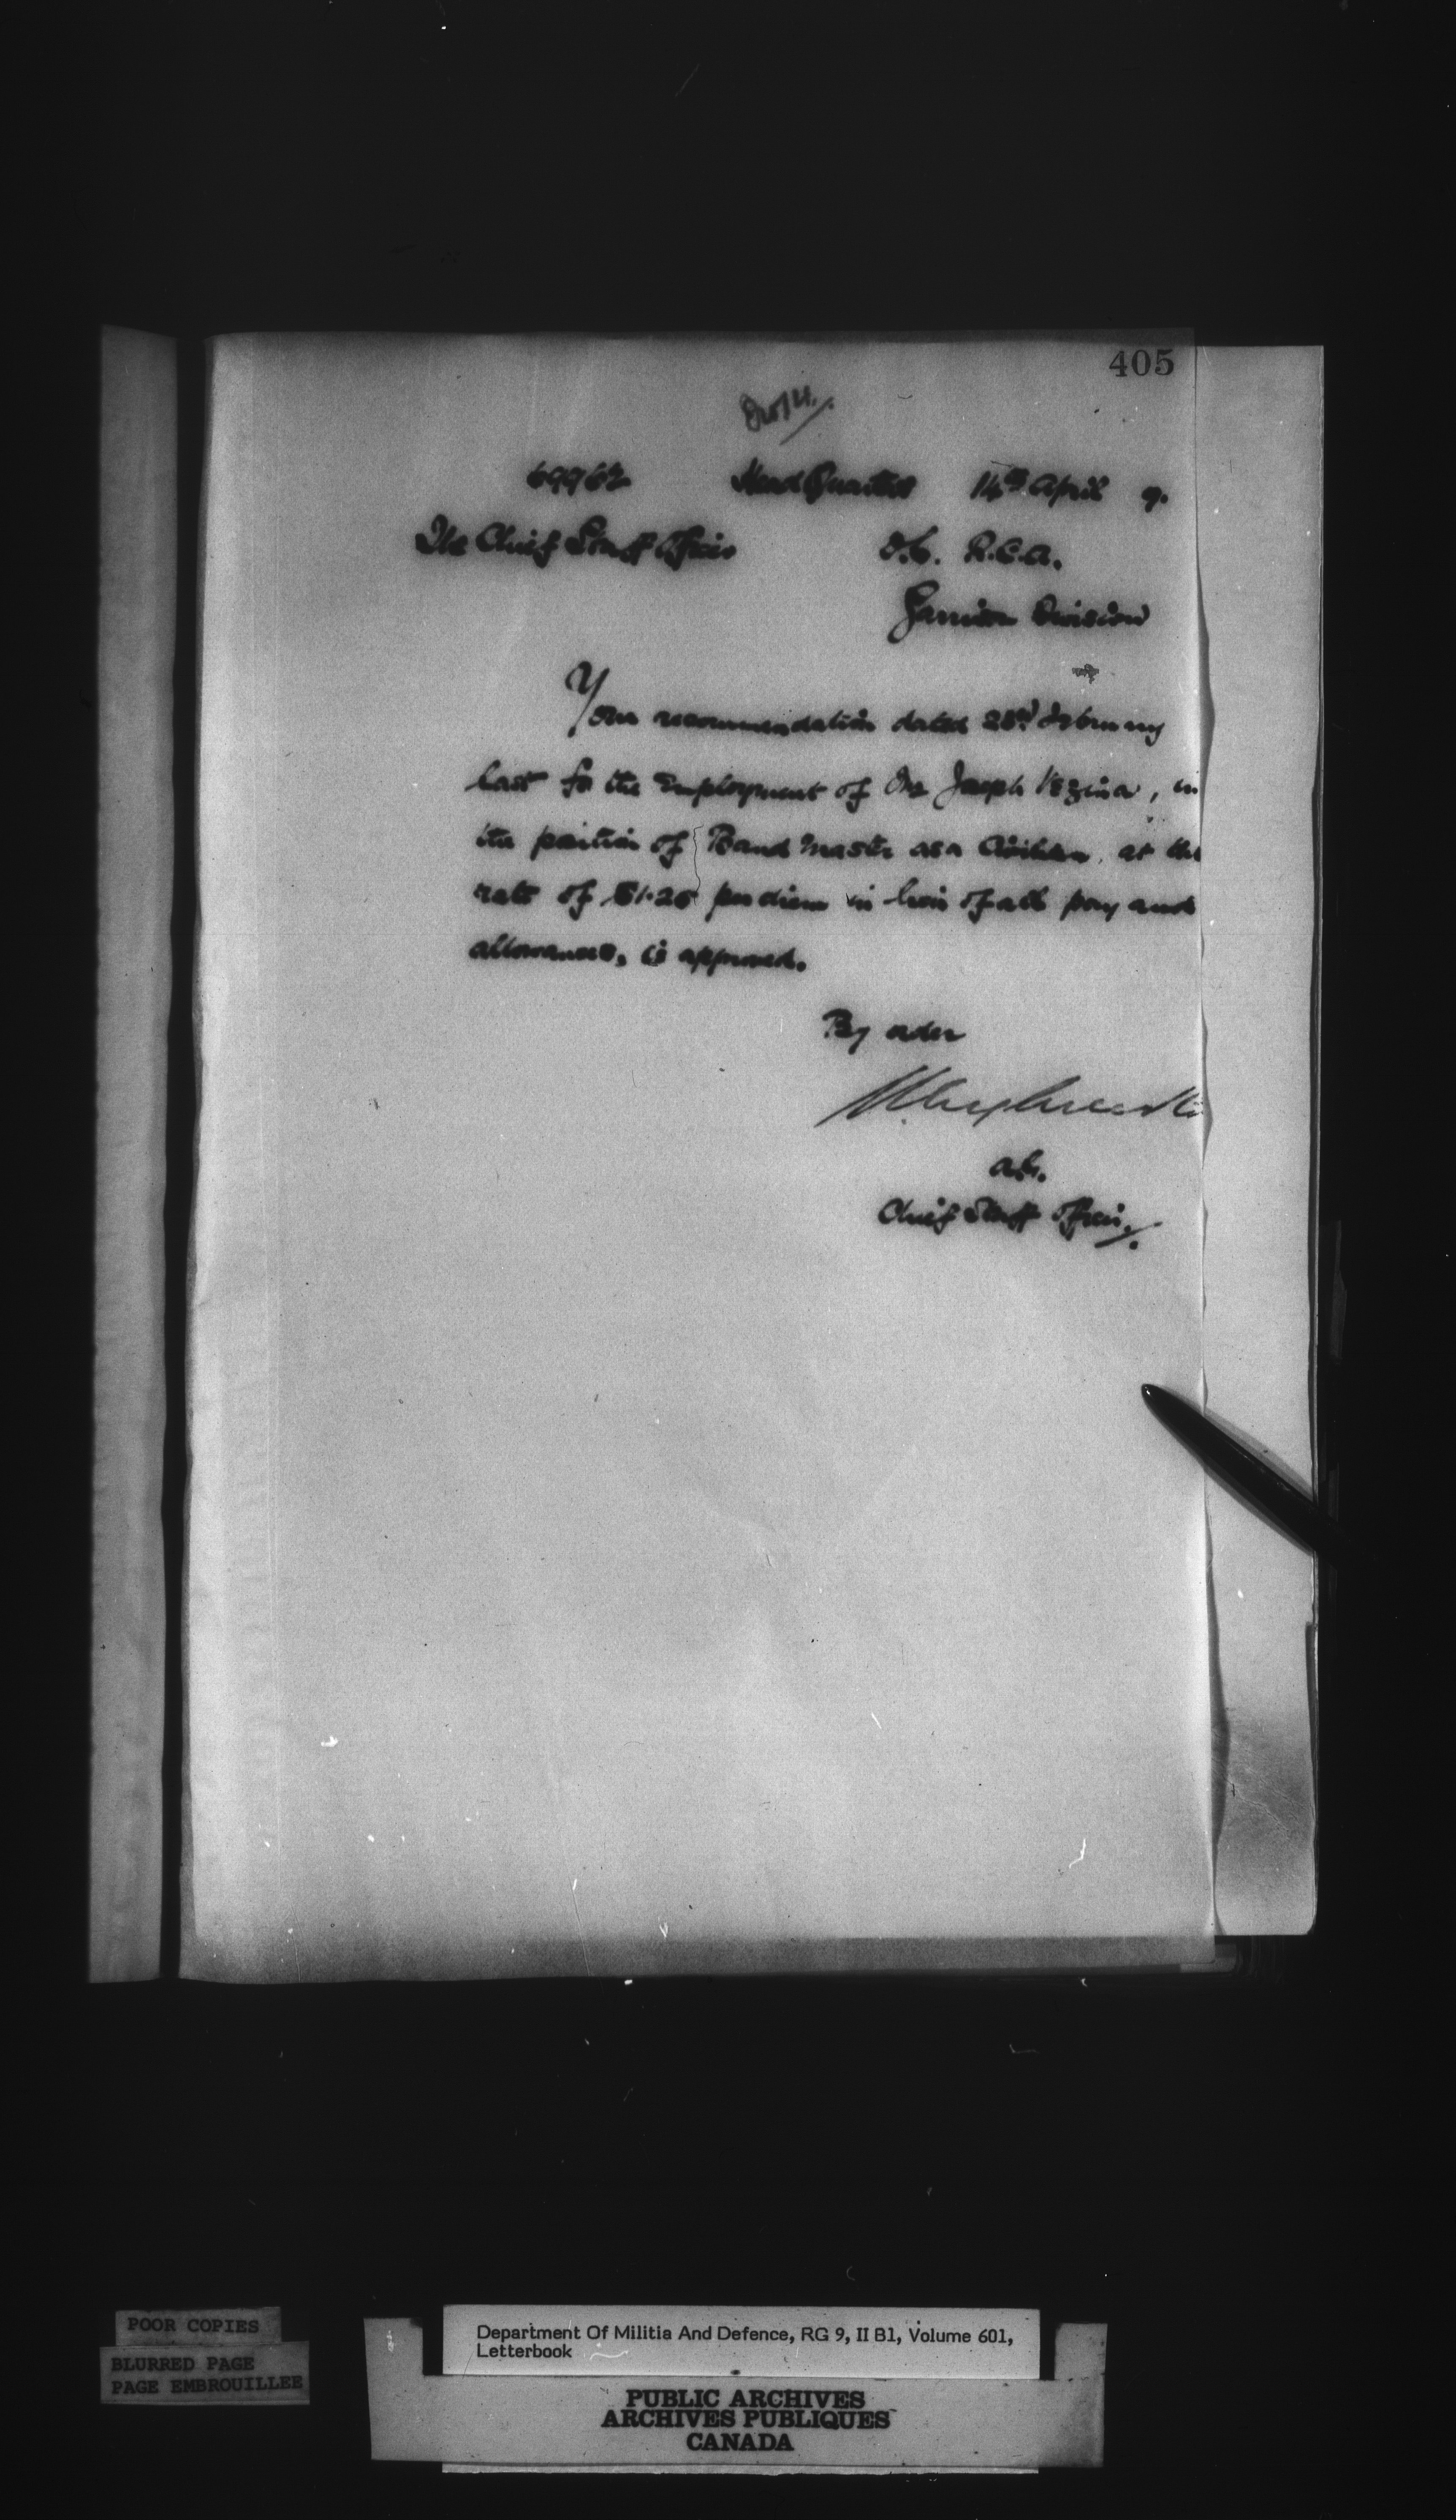 405
69962 Head Quarters 14th April 9.
The Chief Staff Officer O.C. R.C.A.
Garrison Division
Your recommendation dated 28th February
last for the Employment of Mr Joseph Vézina, in
the position of Band Master as a Civilian, at the
rate of $1.25 per diem in lieu of all pay and
allowances, is approved.
By order
a/c.
Chief Staff Officer
POOR COPIES
BLURRED PAGE
PAGE EMBROUILLEE
Department Of Militia And Defence, RG 9, II B1, Volume 601,
Letterbook
PUBLIC ARCHIVES
ARCHIVES PUBLIQUES
CANADA